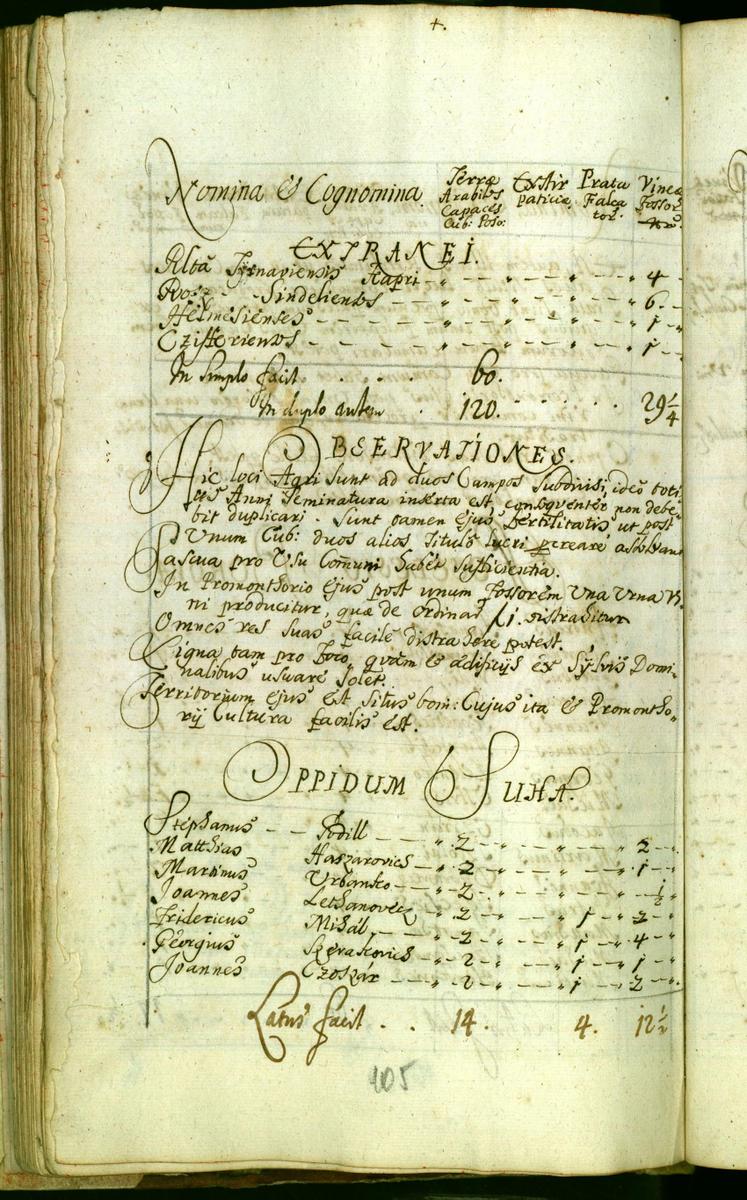 +.
Nomina & Cognomina. Terræ Arabiles Capaces Cub: Poso: Extir paticiæ Prata Falca tor. Vineæ Fossor.
EXTRANEI.
Alba Tyrnaviensis Kapri - „ - „ - „ - 4 -
Rosz - Sindelienses - „ - „ - „ - 6. -
Helmesienses - - „ - „ - „ - 1 - „
Czifferienses - - „ - „ - „ - 1 -
In Simplo facit . . . 60.
In duplo autem . 120. . . . . . 29 1/4
OBSERVATIONES.
Hic loci Agri sunt ad duos Campos Subdivisi, ideo toti-
us Anni Seminatura inserta est, consequenter non debe-
bit duplicari. Sunt tamen ejus fertilitatis, ut post
Unum Cub: duos alios Titulo lucri procreare assoleant
Pascua pro Usu Com̄uni habet sufficientia.
In Promonthorio ejus post unum Fossorem Una Urna Vi-
ni producitur, quæ de ordinar fl 1. distrahitur
Omnes res Suas facile distrahere potest.
Ligna tam pro foco, quam & ædificijs ex Sylvis Domi-
nalibus usuare Solet.
Territorium ejus est situs bom: Cujus ita & Promontho-
rij Cultura facilis est.
OPPIDUM SUHA.
Stephanus - - Podill - - „ 2 - „ - „ - 2 - „
Matthias Haszarovich - „ 2 - „ - „ - 1 - „
Martinus Urbanko - - „ 2 - „ - „ - 1/2 „
Joannes Lethanovecz - „ 2 - „ - „ - 2 - „
Fridericus Mihál - - „ 2 - „ - 1 - 2 - „
Georgius - „ 2 - „ - 1 - 4 - „
Joannes Czoszár - - „ 2 - „ - 1 - 2 - „
Latus facit . . 14. 4. 12 1/2
105